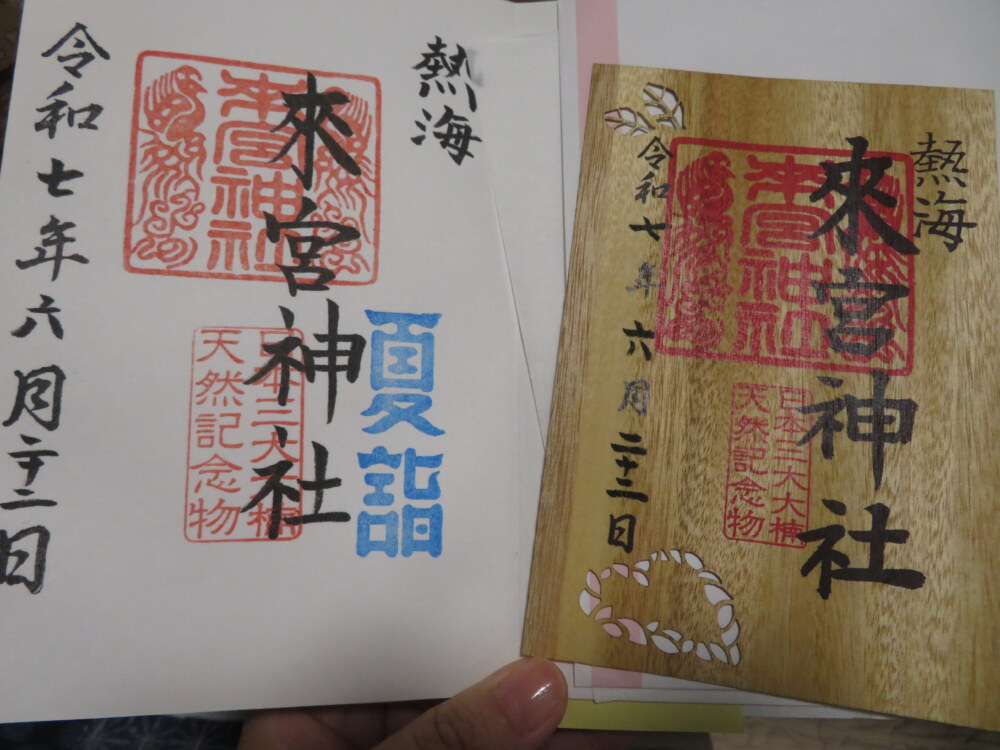 熱海
夏詣
來宮神社
來宮神社
日本三大大楠
天然記念物
令和七年六月二十二日
熱海
來宮神社
來宮神社
日本三大大楠
天然記念物
令和七年六月二十二日